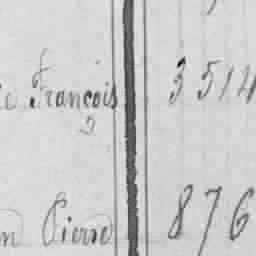 François 3514
Pierre 876